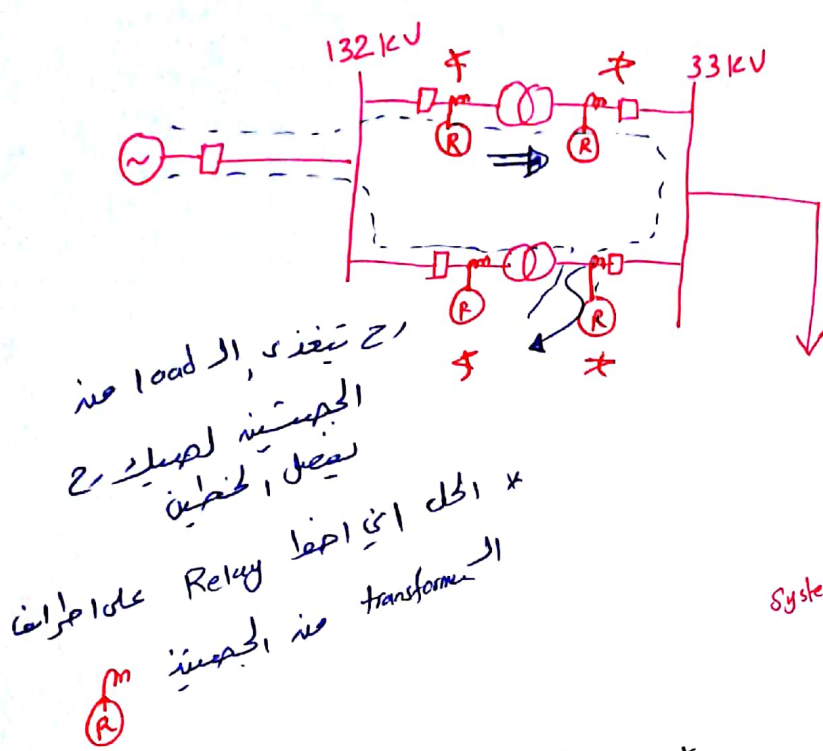 132 kV
33 kV
R
R
R
R
رح تتغذى الـ load من
الجهتين لهيك رح
يفصل الخطين
* الحل اني احط Relay على اطراف
الـ transformer من الجهتين
R
Syste